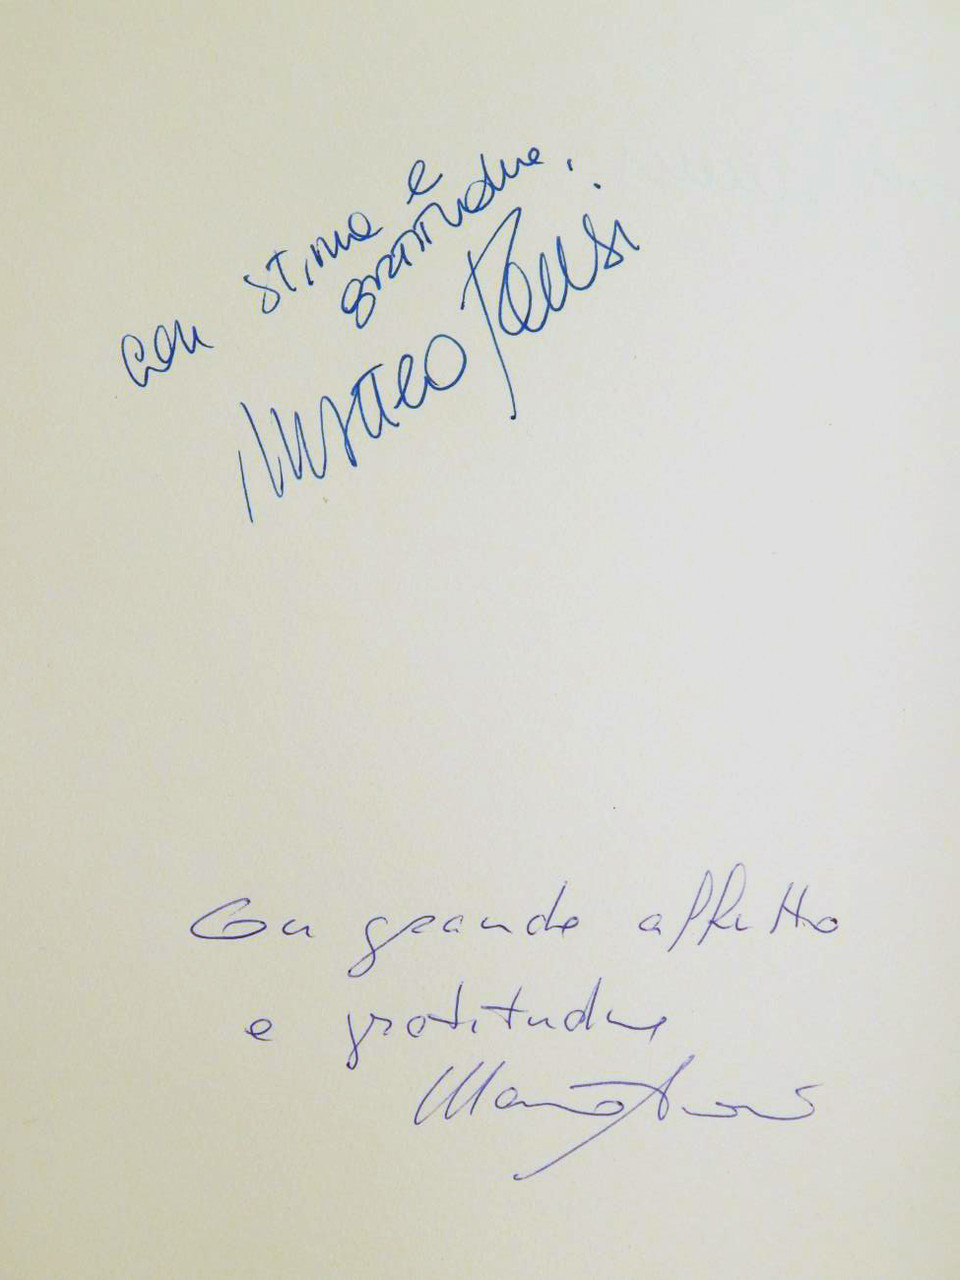 con stima e
gratitudine.
Matteo Renzi
Con grande affetto
e gratitudine